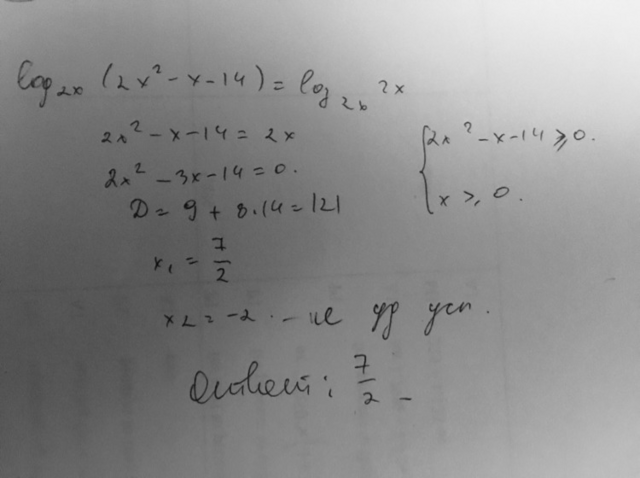 log₂ₓ (2x² - x - 14) = log₂ₓ 2x
2x² - x - 14 = 2x
2x² - 3x - 14 = 0.
D = 9 + 8·14 = 121
x₁ = 7/2
x₂ = -2 - не уд усл.
{ 2x² - x - 14 ⩾ 0.
x ⩾ 0.
Ответ: 7/2